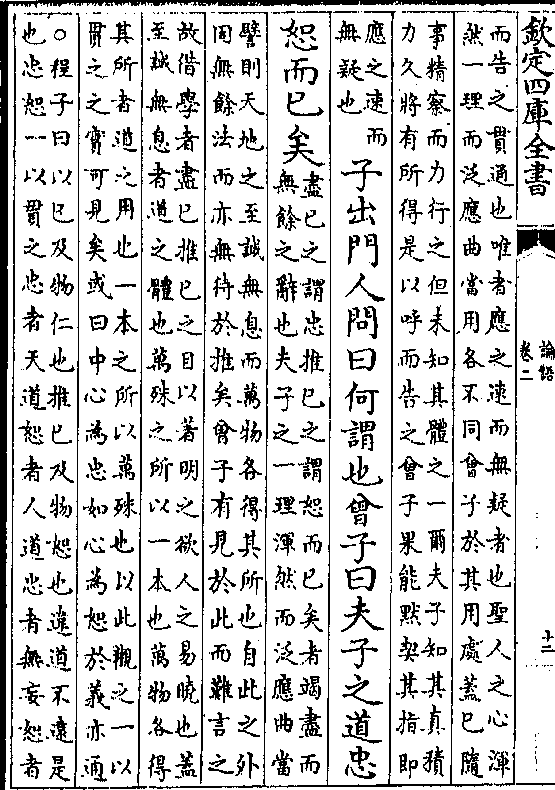 欽定四庫全書
論語
卷二
十二
而告之貫通也唯者應之速而無疑者也聖人之心渾
然一理而泛應曲當用各不同曾子於其用處蓋已隨
事精察而力行之但未知其體之一爾夫子知其真積
力久將有所得是以呼而告之曾子果能默契其指即
應之速而
無疑也
子出門人問曰何謂也曾子曰夫子之道忠
恕而已矣
盡已之謂忠推已之謂恕而已矣者竭盡而
無餘之辭也夫子之一理渾然而泛應曲當
譬則天地之至誠無息而萬物各得其所也自此之外
固無餘法而亦無待於推矣曾子有見於此而難言之
故借學者盡已推已之目以著明之欲人之易曉也蓋
至誠無息者道之體也萬殊之所以一本也萬物各得
其所者道之用也一本之所以萬殊也以此觀之一以
貫之之實可見矣或曰中心為忠如心為恕於義亦通
○程子曰以已及物仁也推已及物恕也違道不遠是
也忠恕一以貫之忠者天道恕者人道忠者無妄恕者